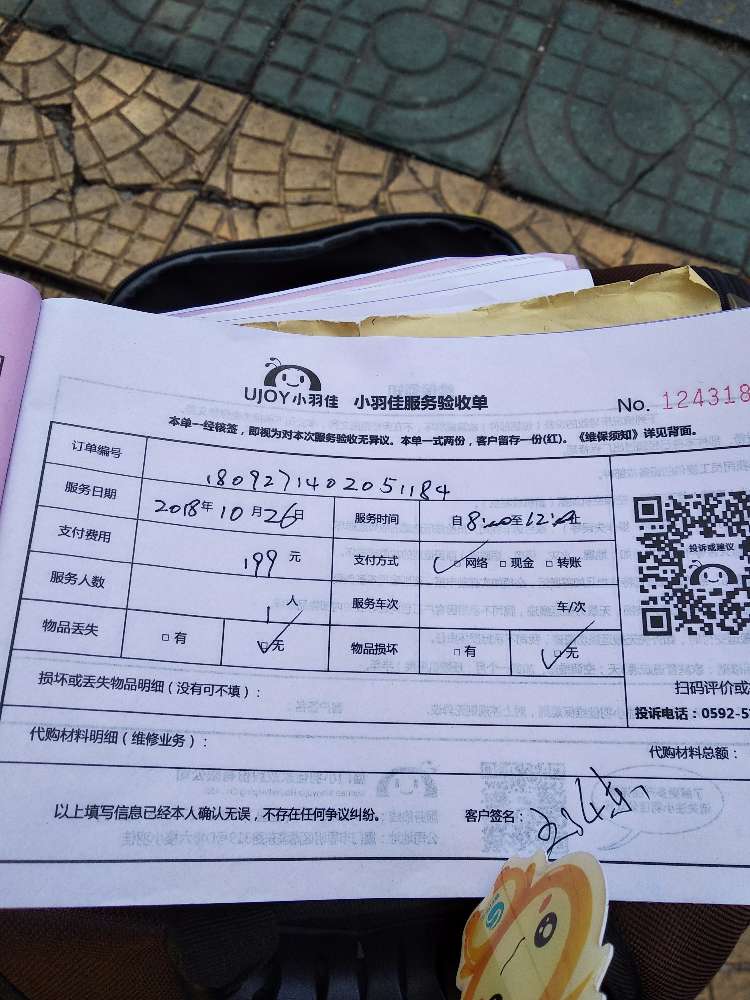 UJOY小羽佳 小羽佳服务验收单 No. 124318
本单一经核签，即视为对本次服务验收无异议。本单一式两份，客户留存一份(红)。《维保须知》详见背面。
订单编号 1809271402051184
服务日期 2018年10月26日 服务时间 自8:00至12:00
支付费用 199元 支付方式 网络 现金 转账
服务人数 1人 服务车次 车/次
物品丢失 有 无 物品损坏 有 无
投诉或建议
损坏或丢失物品明细（没有可不填）：
扫码评价或
投诉电话：0592-5
代购材料明细（维修业务）： 代购材料总额：
以上填写信息已经本人确认无误，不存在任何争议纠纷。 客户签名：